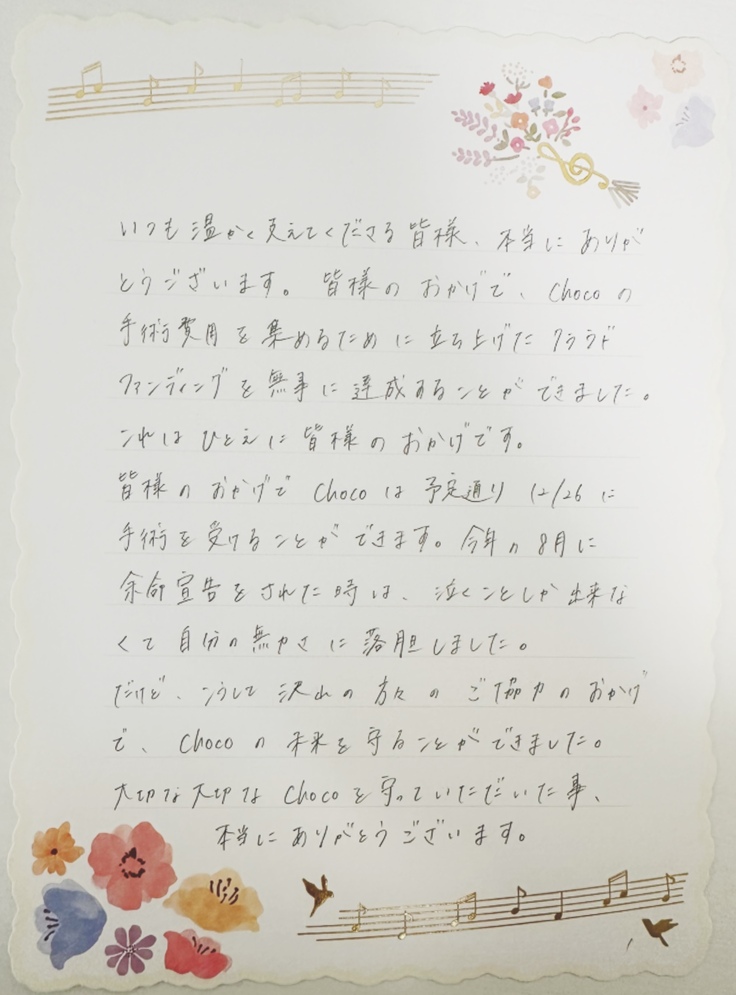 いつも温かく支えてくださる皆様、本当にありが
とうございます。皆様のおかげで、Chocoの
手術費用を集めるために立ち上げたクラウド
ファンディングを無事に達成することができました。
これはひとえに皆様のおかげです。
皆様のおかげでChocoは予定通り12/26に
手術を受けることができます。今年の8月に
余命宣告をされた時は、泣くことしか出来な
くて自分の無力さに落胆しました。
だけど、こうして沢山の方々のご協力のおかげ
で、Chocoの未来を守ることができました。
大切な大切なChocoを守っていただいた事、
本当にありがとうございます。